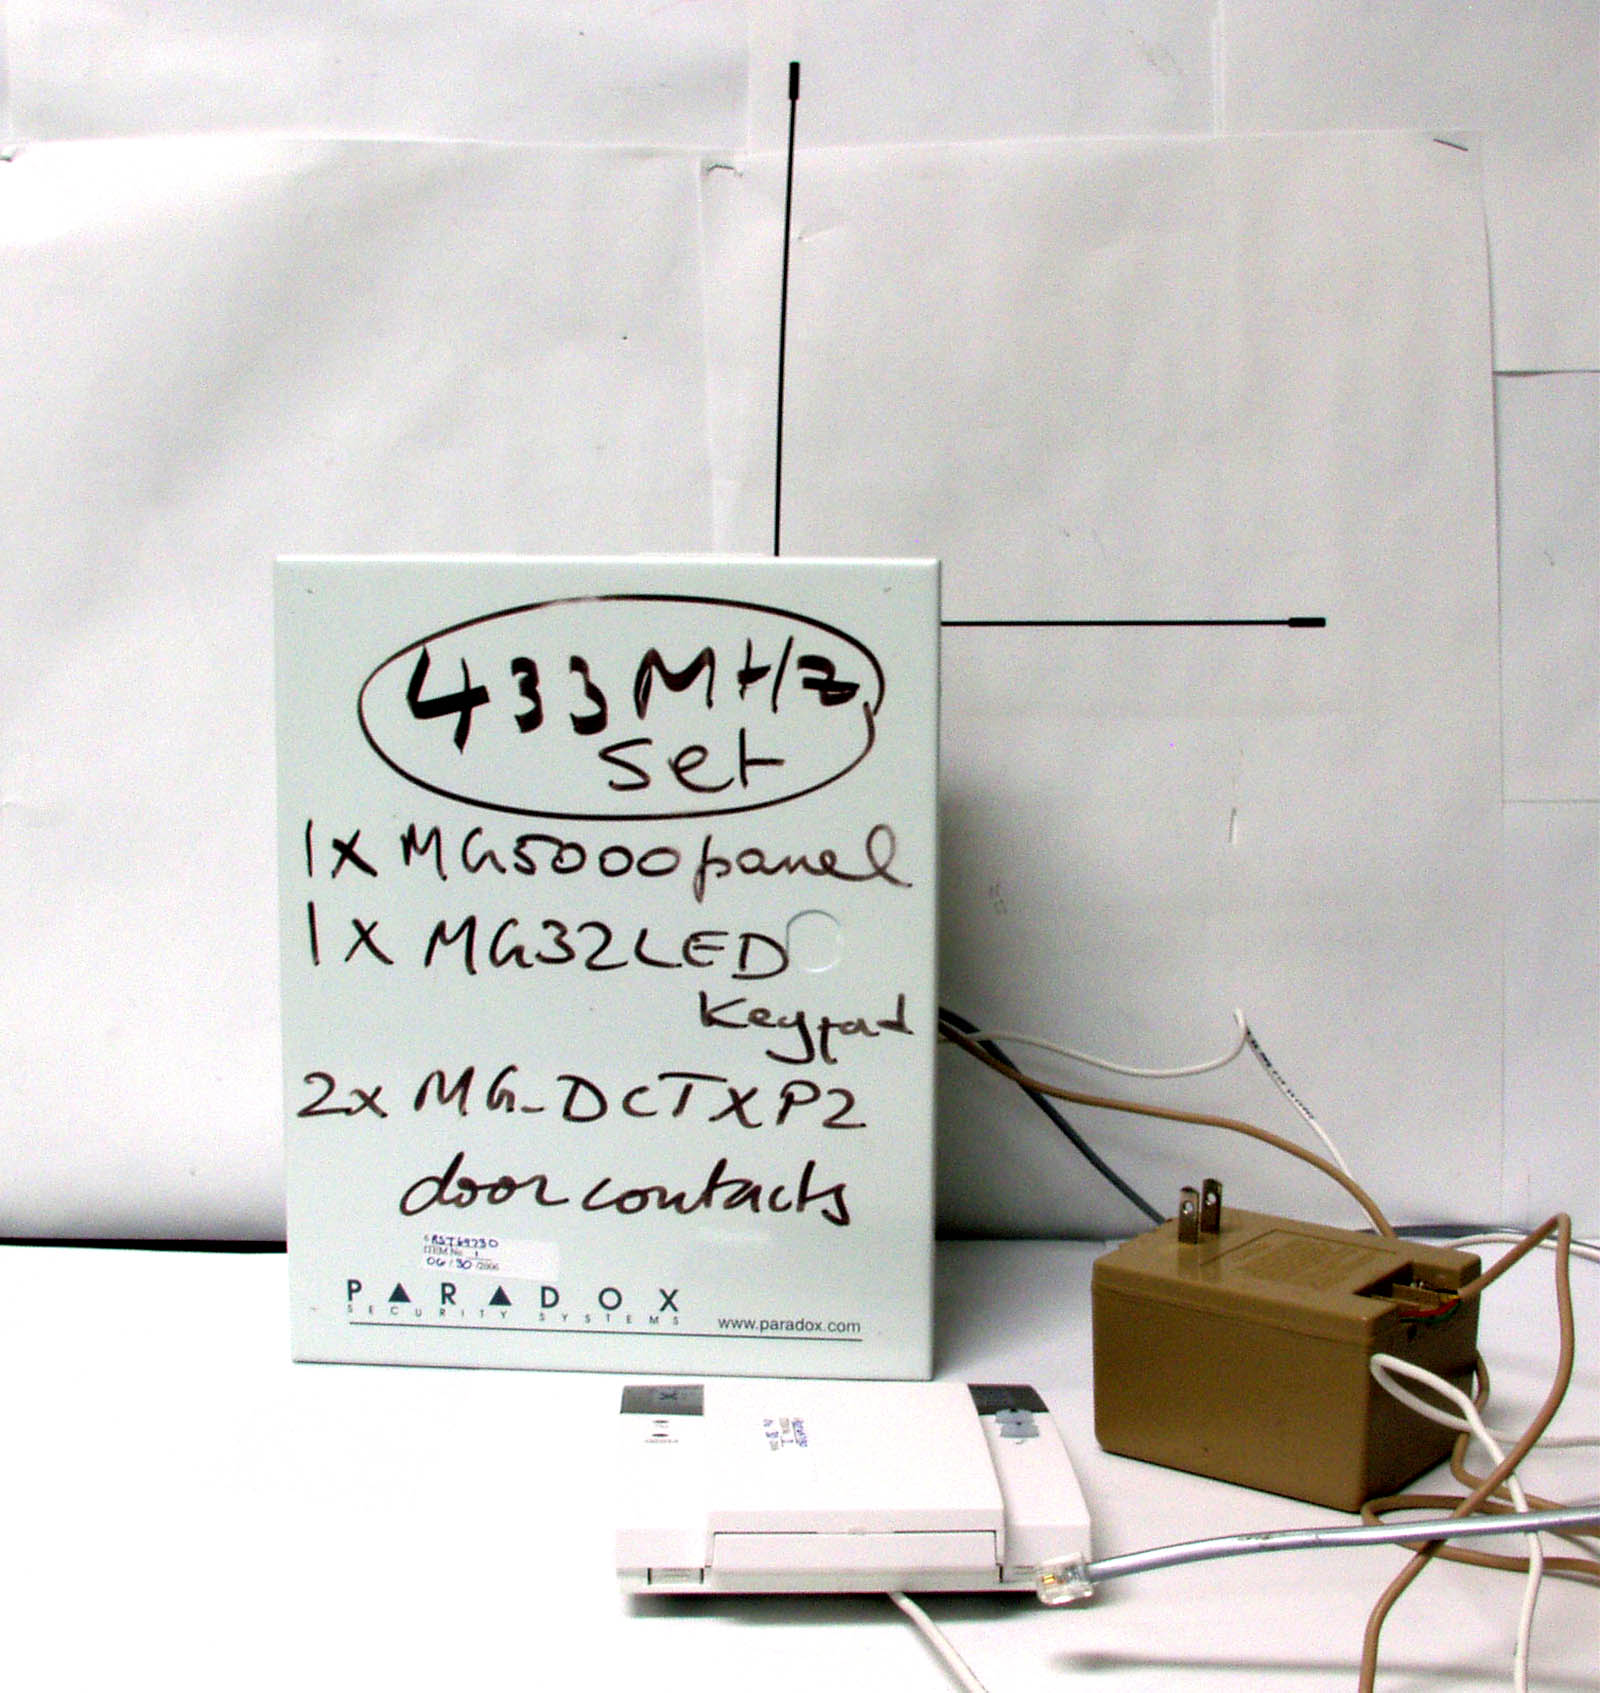 433MHz
set
1x MG5000 panel
1x MG32LED
Keypad
2x MG-DCTXP2
door contacts
ITEM No. 1
06/30/2006
PARADOX
SECURITY SYSTEMS
www.paradox.com